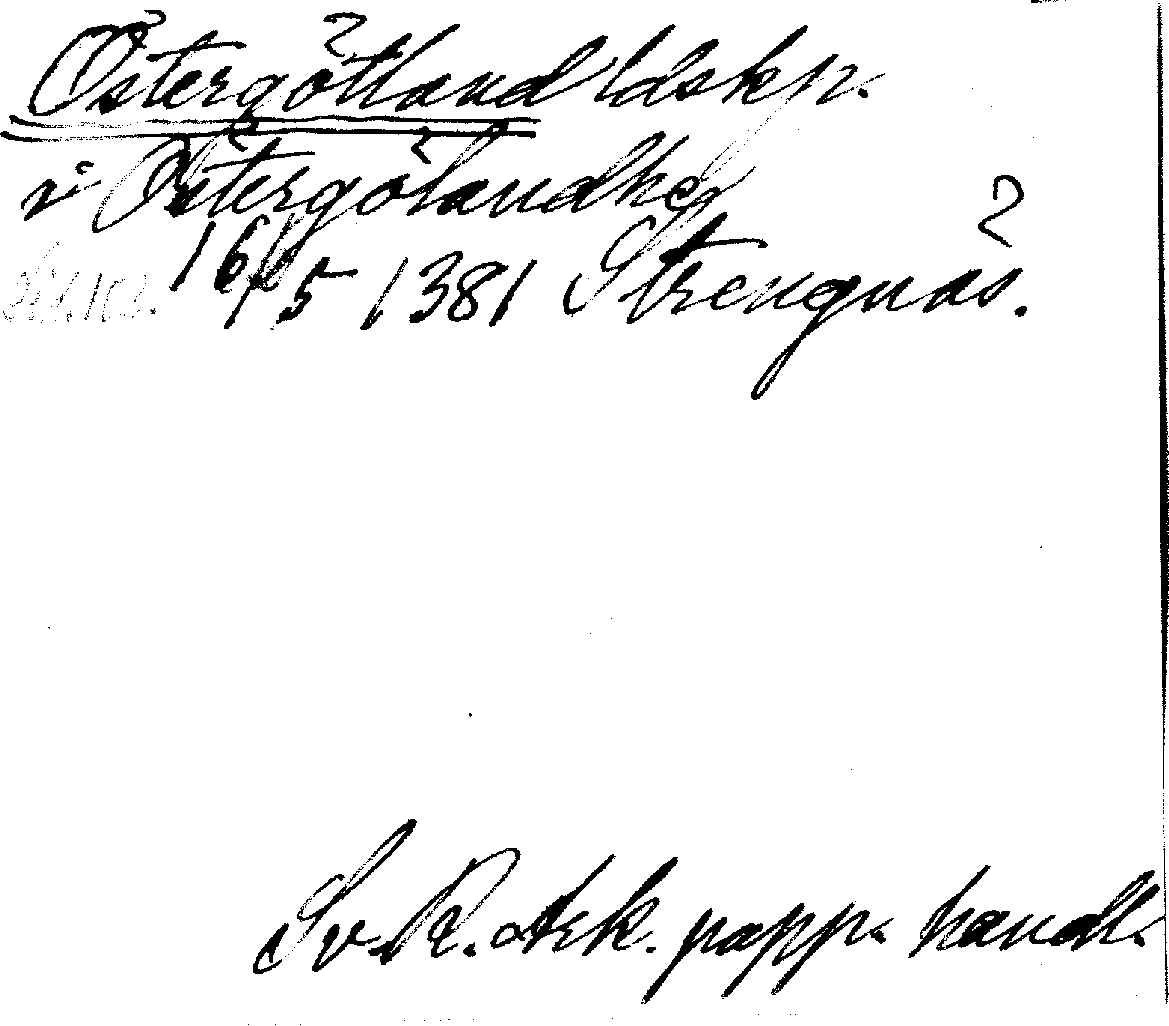 Östergötland ldskp.
i Östergölandhe
16/5 1381 Strengnäs.
Sv. R. ark. papp. handl.